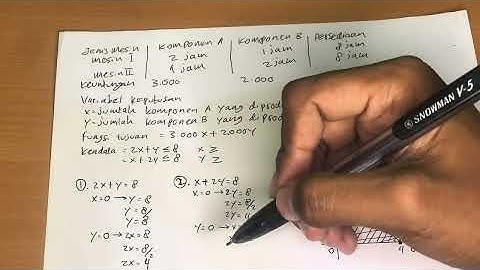 Jenis mesin | Komponen A | Komponen B | Persediaan
mesin I | 2 jam | 1 jam | 8 jam
mesin II | 1 jam | 2 jam | 8 jam
Keuntungan 3.000 2.000
Variabel keputusan
x = jumlah komponen A yang di
y = jumlah komponen B yang di
Fungsi tujuan = 3.000x + 2.000y
kendala = 2x+y ≤ 8 x ≥
= x+2y ≤ 8 y ≥
① 2x+y=8
x=0 → y=8
y=8/
y=8
y=0 → 2x=8
2x=8/2
2x=4
② x+2y=8
x=0 → 2y=8
2y=8/2
2y=4
y=0 →
SNOWMAN V-5
0
4